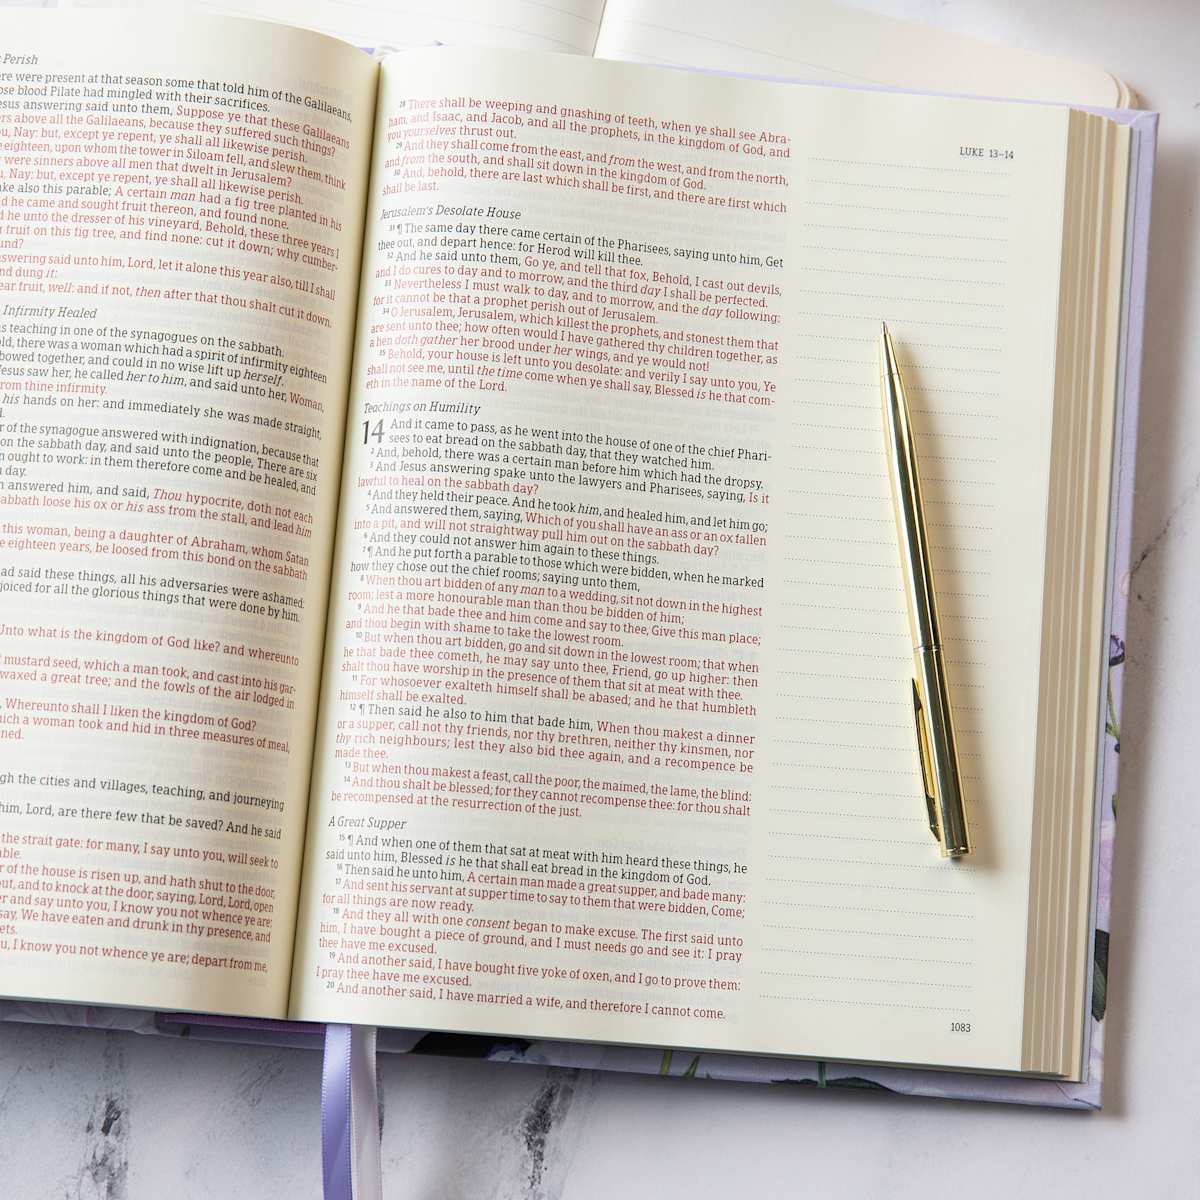 Perish
ere were present at that season some that told him of the Galilaeans,
ose blood Pilate had mingled with their sacrifices.
esus answering said unto them, Suppose ye that these Galilaeans
ers above all the Galilaeans, because they suffered such things?
u, Nay: but, except ye repent, ye shall all likewise perish.
e eighteen, upon whom the tower in Siloam fell, and slew them, think
were sinners above all men that dwelt in Jerusalem?
u, Nay: but, except ye repent, ye shall all likewise perish.
ake also this parable; A certain man had a fig tree planted in his
d he came and sought fruit thereon, and found none.
d he unto the dresser of his vineyard, Behold, these three years I
g fruit on this fig tree, and find none: cut it down; why cumber-
und?
nswering said unto him, Lord, let it alone this year also, till I shall
nd dung it:
ear fruit, well: and if not, then after that thou shalt cut it down.
Infirmity Healed
s teaching in one of the synagogues on the sabbath.
old, there was a woman which had a spirit of infirmity eighteen
bowed together, and could in no wise lift up herself.
Jesus saw her, he called her to him, and said unto her, Woman,
rom thine infirmity.
his hands on her: and immediately she was made straight,
l.
r of the synagogue answered with indignation, because that
on the sabbath day, and said unto the people, There are six
n ought to work: in them therefore come and be healed, and
h day.
n answered him, and said, Thou hypocrite, doth not each
abbath loose his ox or his ass from the stall, and lead him
this woman, being a daughter of Abraham, whom Satan
e eighteen years, be loosed from this bond on the sabbath
ad said these things, all his adversaries were ashamed:
joiced for all the glorious things that were done by him.
Unto what is the kingdom of God like? and whereunto
f mustard seed, which a man took, and cast into his gar-
waxed a great tree; and the fowls of the air lodged in
, Whereunto shall I liken the kingdom of God?
hich a woman took and hid in three measures of meal,
ned.
gh the cities and villages, teaching, and journeying
him, Lord, are there few that be saved? And he said
the strait gate: for many, I say unto you, will seek to
able.
r of the house is risen up, and hath shut to the door,
out, and to knock at the door, saying, Lord, Lord, open
er and say unto you, I know you not whence ye are:
say, We have eaten and drunk in thy presence, and
ets.
u, I know you not whence ye are; depart from me,
LUKE 13–14
28 There shall be weeping and gnashing of teeth, when ye shall see Abra-
ham, and Isaac, and Jacob, and all the prophets, in the kingdom of God, and
you yourselves thrust out.
29 And they shall come from the east, and from the west, and from the north,
and from the south, and shall sit down in the kingdom of God.
30 And, behold, there are last which shall be first, and there are first which
shall be last.
Jerusalem's Desolate House
31 ¶ The same day there came certain of the Pharisees, saying unto him, Get
thee out, and depart hence: for Herod will kill thee.
32 And he said unto them, Go ye, and tell that fox, Behold, I cast out devils,
and I do cures to day and to morrow, and the third day I shall be perfected.
33 Nevertheless I must walk to day, and to morrow, and the day following:
for it cannot be that a prophet perish out of Jerusalem.
34 O Jerusalem, Jerusalem, which killest the prophets, and stonest them that
are sent unto thee; how often would I have gathered thy children together, as
a hen doth gather her brood under her wings, and ye would not!
35 Behold, your house is left unto you desolate: and verily I say unto you, Ye
shall not see me, until the time come when ye shall say, Blessed is he that com-
eth in the name of the Lord.
Teachings on Humility
14 And it came to pass, as he went into the house of one of the chief Phari-
sees to eat bread on the sabbath day, that they watched him.
2 And, behold, there was a certain man before him which had the dropsy.
3 And Jesus answering spake unto the lawyers and Pharisees, saying, Is it
lawful to heal on the sabbath day?
4 And they held their peace. And he took him, and healed him, and let him go;
5 And answered them, saying, Which of you shall have an ass or an ox fallen
into a pit, and will not straightway pull him out on the sabbath day?
6 And they could not answer him again to these things.
7 ¶ And he put forth a parable to those which were bidden, when he marked
how they chose out the chief rooms; saying unto them,
8 When thou art bidden of any man to a wedding, sit not down in the highest
room; lest a more honourable man than thou be bidden of him;
9 And he that bade thee and him come and say to thee, Give this man place;
and thou begin with shame to take the lowest room.
10 But when thou art bidden, go and sit down in the lowest room; that when
he that bade thee cometh, he may say unto thee, Friend, go up higher: then
shalt thou have worship in the presence of them that sit at meat with thee.
11 For whosoever exalteth himself shall be abased; and he that humbleth
himself shall be exalted.
12 ¶ Then said he also to him that bade him, When thou makest a dinner
or a supper, call not thy friends, nor thy brethren, neither thy kinsmen, nor
thy rich neighbours; lest they also bid thee again, and a recompence be
made thee.
13 But when thou makest a feast, call the poor, the maimed, the lame, the blind:
14 And thou shalt be blessed; for they cannot recompense thee: for thou shalt
be recompensed at the resurrection of the just.
A Great Supper
15 ¶ And when one of them that sat at meat with him heard these things, he
said unto him, Blessed is he that shall eat bread in the kingdom of God.
16 Then said he unto him, A certain man made a great supper, and bade many:
17 And sent his servant at supper time to say to them that were bidden, Come;
for all things are now ready.
18 And they all with one consent began to make excuse. The first said unto
him, I have bought a piece of ground, and I must needs go and see it: I pray
thee have me excused.
19 And another said, I have bought five yoke of oxen, and I go to prove them:
I pray thee have me excused.
20 And another said, I have married a wife, and therefore I cannot come.
1083